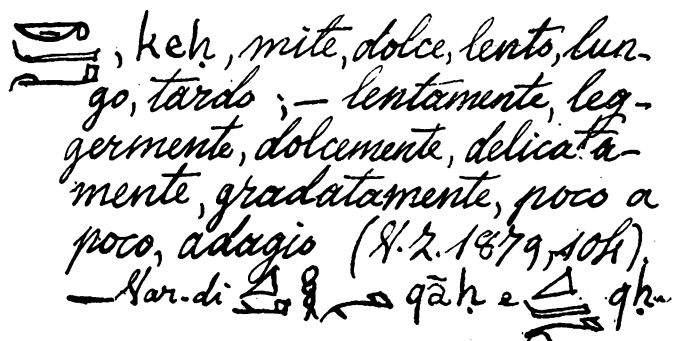 , keḥ, mite, dolce, lento, lun-
go, tardo ; — lentamente, leg-
germente, dolcemente, delicata-
mente, gradatamente, poco a
poco, adagio (N. Z. 1879, 104).
— Var. di qāḥ e qḥ.